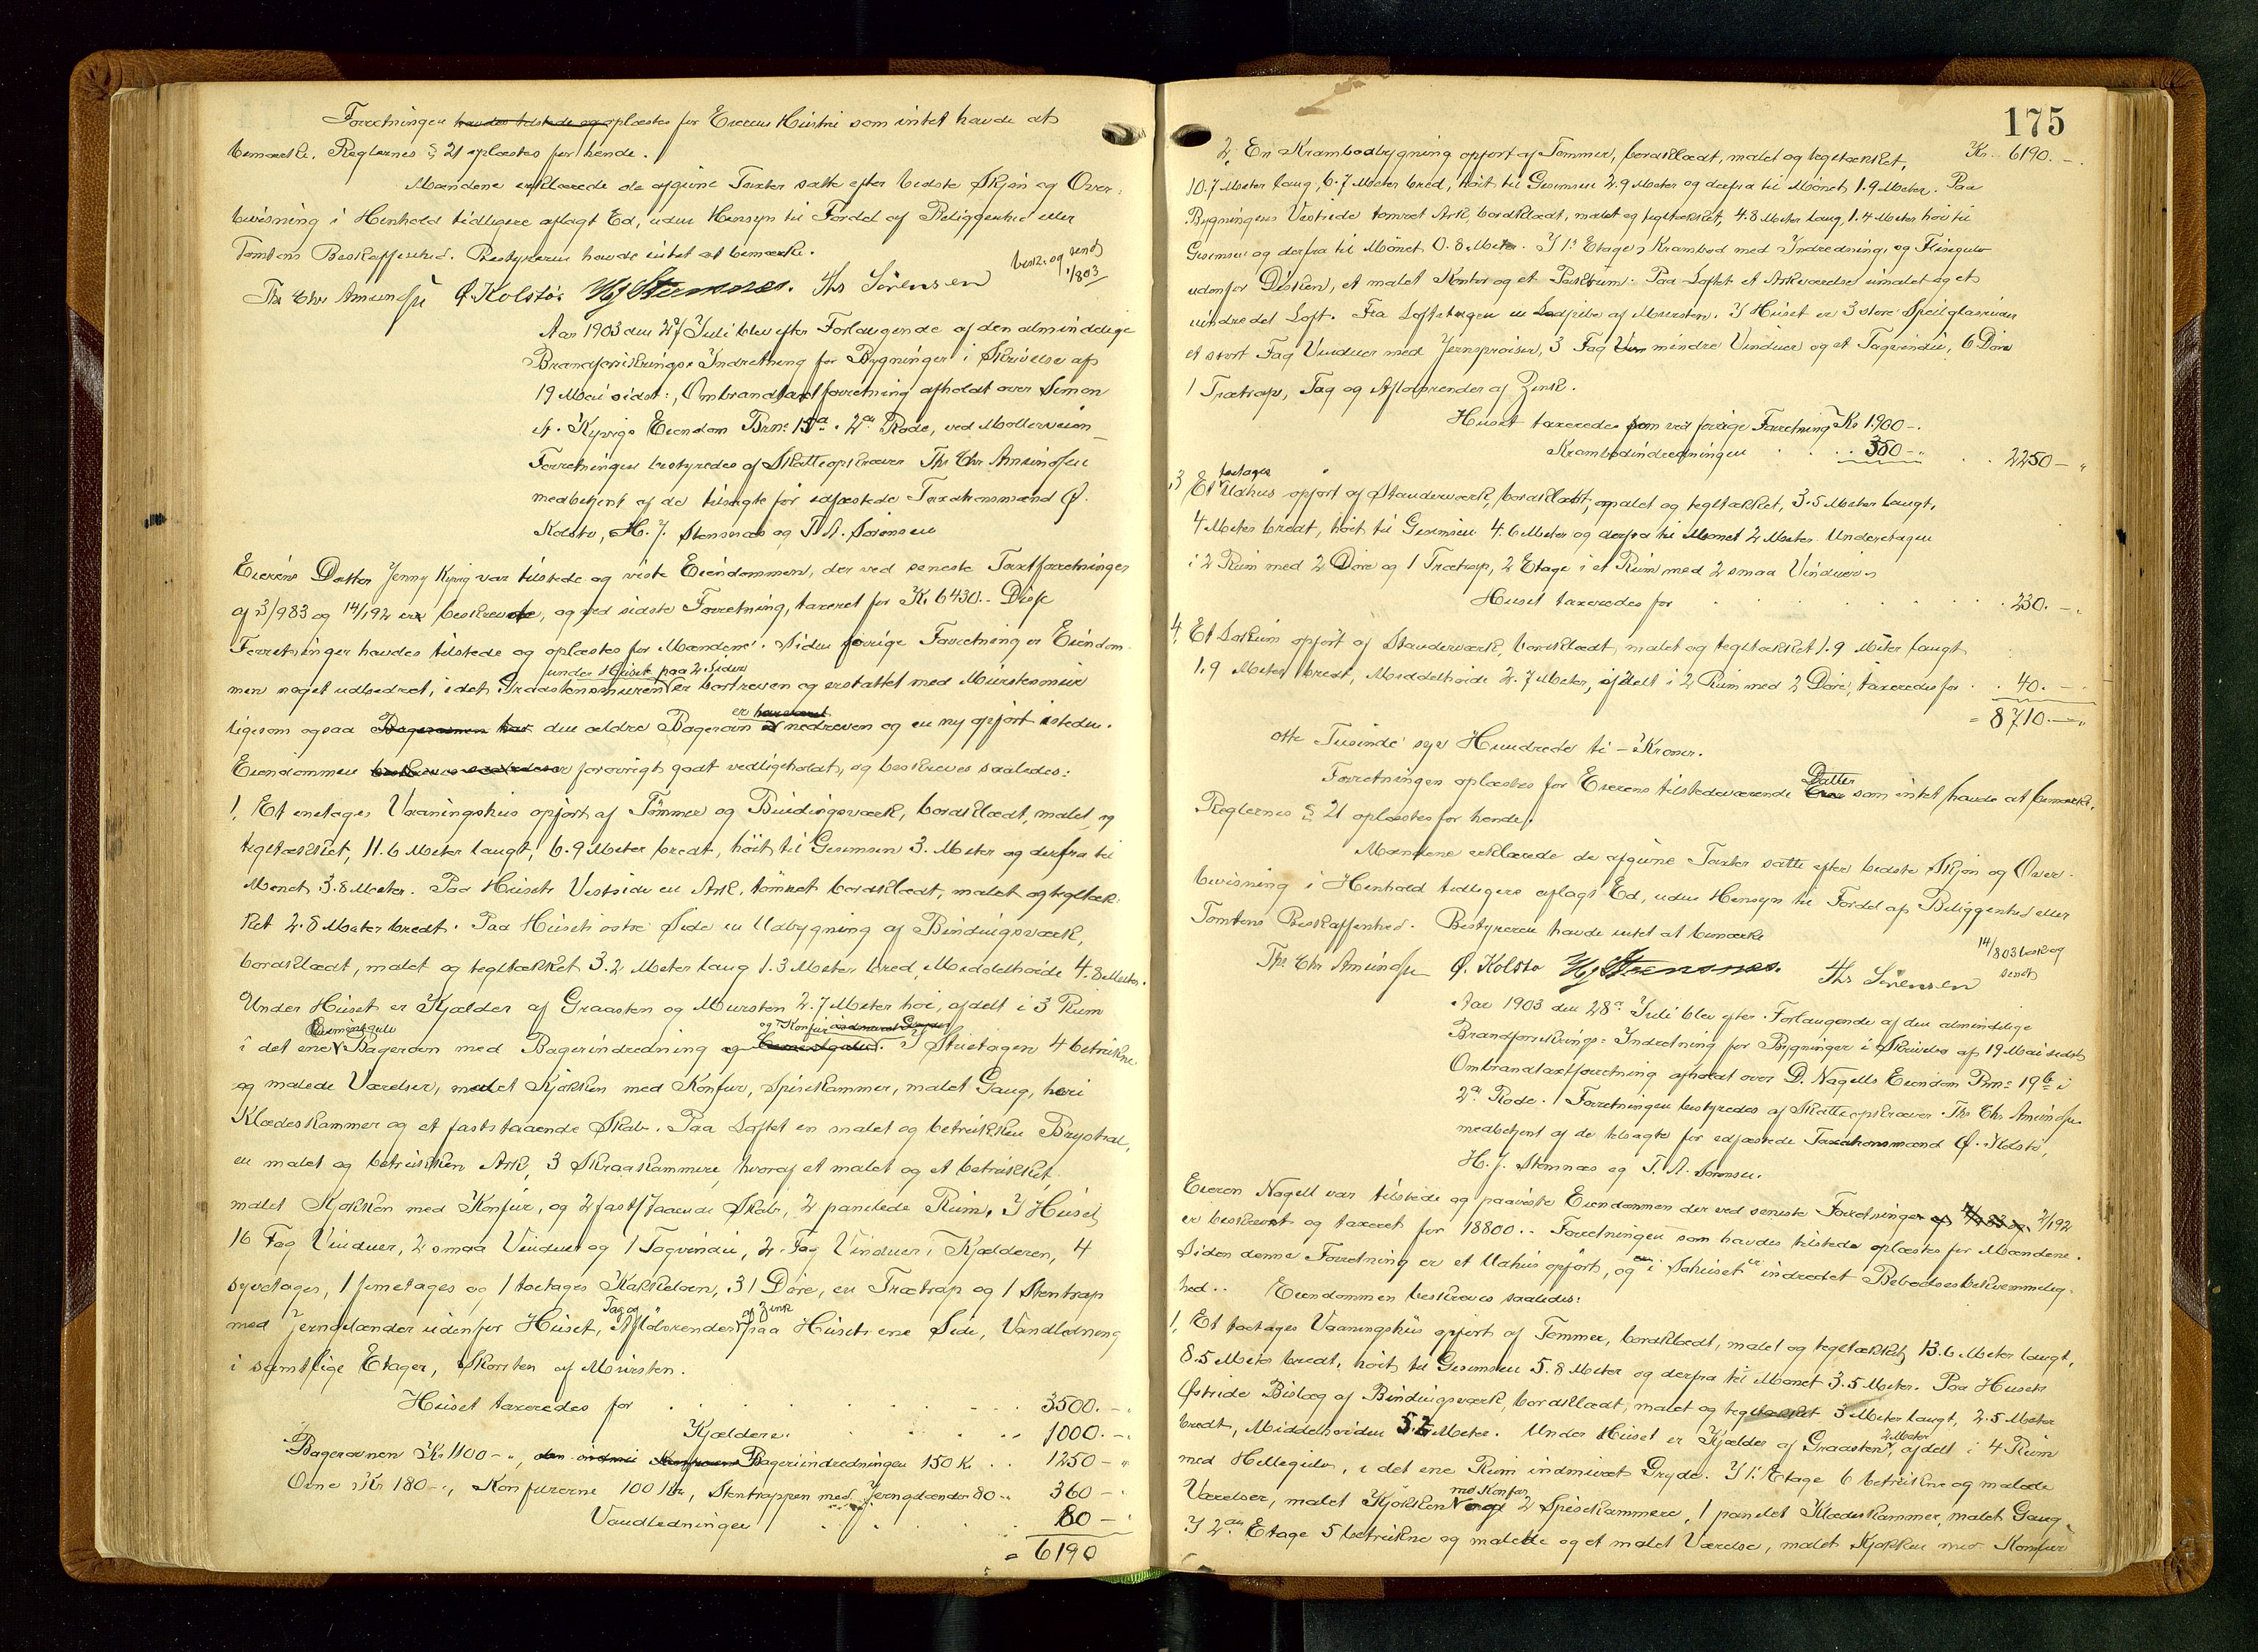 Forretningen havdes tilstede og oplæstes for Eierens Hustru som intet havde at
bemærke. Reglernes § 21 oplæstes for hende.
Mændene erklærede de afgivne Taxter satte efter bedste Skjøn og Over-
bevisning i Henhold tidligere aflagt Ed, uden Hensyn til Fordel af Beliggenhed eller
Tomtens Beskaffenhed. Bestyreren havde intet at bemærke.
beskr. og sendt
1/8 03
Ths Chr Amundsen O. Kolstø HJ Stensnæs. Ths Sørensen
Aar 1903 den 28 Juli blev efter Forlangende af den almindelige
Brandforsikrings-Indretning for Bygninger i Skrivelse af
19 Mai sidst:, Ombrandtaxtforretning afholdt over Simon
A. Kyvigs Eiendom Brn: 15a. 2den Rode, ved Mølleveien
Forretningen bestyredes af Skatteopkræver Ths Chr Amundsen
medbetjent af de tilsagte før edfæstede Taxationsmænd O.
Kolstø, H. J. Stensnæs og T. A. Sørensen
Eierens Datter Jenny Kyvig var tilstede og viste Eiendommen, der ved seneste Taxtforretninger
af 3/9 83 og 14/1 92 er beskrevne, og ved sidste Forretning, taxeret for Kr 6430.- Disse
Forretninger havdes tilstede og oplæstes for Mændene. Siden forrige Forretning er Eiendom-
under Huset paa 2 Sider
men noget udbedret, idet Graastensmuren er bortreven og erstattet med Murstensmur
er havdaret
ligesom ogsaa Bagerovnen har den ældre Bagerovn nedreven og en ny opført isteden.
Eiendommen beskrives saaledes er forøvrigt godt vedligeholdt, og beskrives saaledes:
1, Et enetages Vaaningshus opført af Tømmer og Bindingsværk, bordklædt, malet og
tegltækket, 11.6 Meter langt, 6.9 Meter bredt, høit til Gesimsen 3. Meter og derfra til
Mønet 3.8 Meter. Paa Husets Vestside en Ark, tømret bordklædt, malet og tegltæk-
ket 2.8 Meter bredt. Paa Husets østre Side en Udbygning af Bindingsværk,
bordklædt, malet og tegltækket 3.2 Meter lang 1.3 Meter bred, Middelhøide 4.8 Meter.
Under Huset er Kjælder af Graasten og Mursten 2.7 Meter høi, afdelt i 3 Rum
Cementgulv og Konfur indmuret Gryde
i det ene Bagerovn med Bagerindredning og Cementgulv. I Stuetagen 4 betrukne
og malede Værelser, malet Kjøkken med Konfur, Spisekammer, malet Gang, heri
Klædeskammer og et faststaaende Skab. Paa Loftet en malet og betrukken Brystral,
en malet og betrukken Ark, 3 Skraakammere, hvoraf et malet og et betrukket,
malet Kjøkken med Konfur, og 2 faststaaende Skab, 2 panelede Rum. I Huset
16 Fag Vinduer, 2 smaa Vinduer og 1 Tagvindu, 2 Fag Vinduer i Kjælderen, 4
syvetages, 1 femetages og 1 toetages Kakkelovn, 31 Døre, en Trætrap og 1 Stentrap
Tag og af Zink
med Jerngelænder udenfor Huset, Afløbsrender paa Husets ene Side, Vandledning
i samtlige Etager, Skorsten af Mursten.
Huset taxeredes for 3500.-
Kjælderen 1000.-
Bagerovnen Kr 1100-, Bageriindredningen 150 Kr 1250-
Ovne Kr 180-, Konfurerne 100 Kr, Stentrappen med Jerngelænder 80- 360-
Vandledningen 80-
= 6190
175
Kr. 6190.-
2, En Krambodbygning opført af Tømmer, bordklædt, malet og tegltækket,
10.7 Meter lang, 6.7 Meter bred, høit til Gesimsen 2.9 Meter og derfra til Mønet 1.9 Meter. Paa
Bygningens Vestside tømret Ark, bordklædt, malet og tegltækket, 4.8 Meter lang, 1.4 Meter høi til
Gesimsen og derfra til Mønet 0.8 Meter. I 1st Etage, Krambod med Indredning, og Flisegulv
udenfor Disken, et malet Kontor og et Pakrum. Paa Loftet et Arkværelse umalet og et
uindredet Loft. Fra Loftetagen en Ladpibe af Mursten. I Huset er 3 store Speilglasruder
et stort Fag Vinduer med Jernsprosser, 3 Fag Vin mindre Vinduer og et Tagvindu, 6 Døre
1 Trætrap, Tag og Afløbsrender af Zink.
Huset taxeredes som ved forrige Forretning Kr 1900-.
Krambodindredningen 350-. 2250-
toetages
3 Et Udhus opført af Standerværk, bordklædt, malet og tegltækket, 3.5 Meter langt,
4 Meter bredt, høit til Gesimsen 4.6 Meter og derfra til Mønet 2 Meter. Underetagen
i 2 Rum med 2 Døre og 1 Trætrap, 2 Etage i et Rum med 2 smaa Vinduer
Huset taxeredes for 230.-
4, Et Lokum opført af Standerværk, bordklædt, malet og tegltækket 1.9 Meter langt
1,9 Meter bredt, Middelhøide 2.7 Meter, afdelt i 2 Rum med 2 Døre, taxeredes for 40.-
= 8710.-
otte Tusinde syv Hundrede ti - Kroner.
Datter
Forretningen oplæstes for Eierens tilstedeværende Eier som intet havde at bemærke.
Reglernes § 21 oplæstes for hende.
Mændene erklærede de afgivne Taxter satte efter bedste Skjøn og Over-
bevisning i Henhold tidligere aflagt Ed, uden Hensyn til Fordel af Beliggenhed eller
Tomtens Beskaffenhed. Bestyreren havde intet at bemærke
14/8 03 besk og
sendt
Ths Chr Amundsen O. Kolstø HJ Stensnæs. Ths Sørensen
Aar 1903 den 28de Juli blev efter Forlangende af den almindelige
Brandforsikrings-Indretning for Bygninger i Skrivelse af 19 Mai sidst
Ombrandtaxtforretning afholdt over D. Nagells Eiendom Brn: 19b i
2den Rode. Forretningen bestyredes af Skatteopkræver Ths Chr Amundsen
medbetjent af de tilsagte før edfæstede Taxationsmænd O. Kolstø,
H. J. Stensnæs og T. A. Sørensen.
Eieren Nagell var tilstede og paaviste Eiendommen der ved seneste Forretninger af 2/1 92
er beskrevet og taxeret for 18800.- Forretningen som havdes tilstede oplæstes for Mændene.
Siden denne Forretning er et Udhus opført, og i Sjøhuset er indredet Beboelsesbekvemmelig-
hed. Eiendommen beskrives saaledes:
1, Et toetages Vaaningshus opført af Tømmer, bordklædt, malet og tegltækket, 13.6 Meter langt,
8.5 Meter bredt, høit til Gesimsen 5.8 Meter og derfra til Mønet 3.5 Meter. Paa Husets
Østside Bislag af Bindingsværk, bordklædt, malet og tegltækket 3 Meter langt, 2.5 Meter
2 Meter
bredt, Middelhøiden 5.2 Meter. Under Huset er Kjælder af Graasten, afdelt i 4 Rum
med Hellegulv, i det ene Rum indmuret Gryde. I 1. Etage 6 betrukne og malede
med Konfur
Værelser, malet Kjøkken og 2 Spisekammere, 1 panelet Klædeskammer, malet Gang
I 2den Etage 5 betrukne og malede og et malet Værelse, malet Kjøkken med Komfur